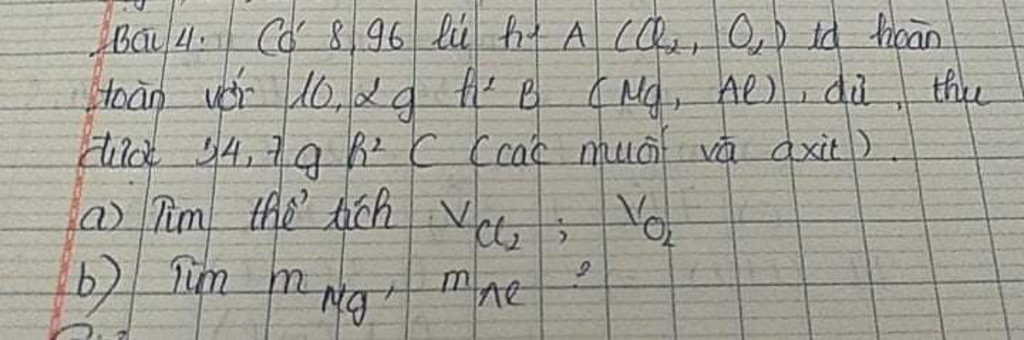 Bài 4. Có 8,96 lít h² A (Cl₂, O₂) td hoàn
toàn với 10,2 g h² B (Mg, Al), đủ, thu
được 34,7 g h² C (các muối và axit).
a) Tìm thể tích V_Cl₂ ; V_O₂
b) Tìm m_Mg, m_Al ?